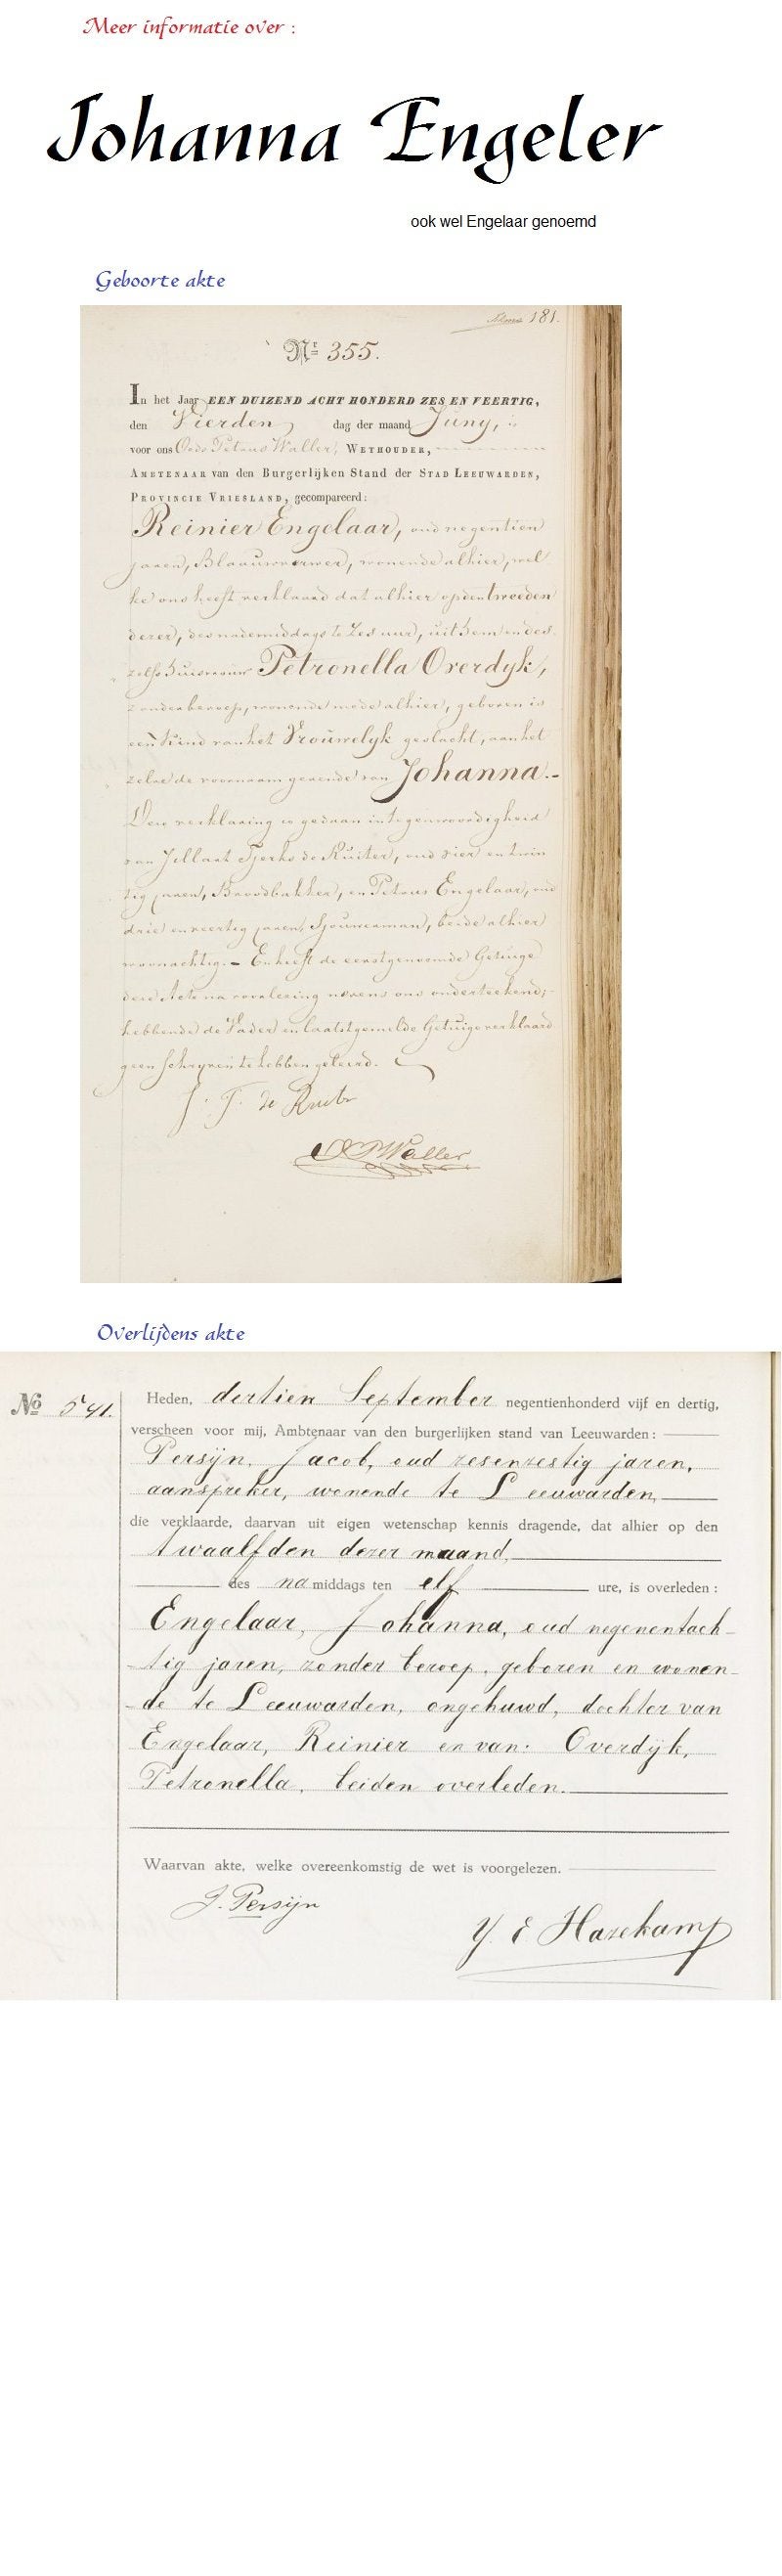 Meer informatie over :
Johanna Engeler
ook wel Engelaar genoemd
Geboorte akte
181.
Nr 355.
In het Jaar EEN DUIZEND ACHT HONDERD ZES EN VEERTIG,
den Vierden dag der maand Juny,
voor ons Petrus Waller, WETHOUDER,
AMBTENAAR van den Burgerlijken Stand der STAD LEEUWARDEN,
PROVINCIE VRIESLAND, gecompareerd:
Reinier Engelaar, oud negentien
jaren, Blaauwverwer, wonende alhier, wel
ke ons heeft verklaard dat alhier op den tweeden
dezer, des nademiddags te Zes uur, uit hem en des
zelfs huisvrouw Petronella Overdyk,
zonder beroep, wonende mede alhier, geboren is
een Kind van het Vrouwelyk geslacht, aan het
zelve de voornaam gevende van Johanna.-
Deze verklaring is gedaan in tegenwoordigheid
van Jellart Tjerks de Ruiter, oud vier en twin
tig jaren, Broodbakker, en Petrus Engelaar, oud
drie en veertig jaren, Sjouwerman, beide alhier
woonachtig. - En heeft de eerstgenoemde Getuige
deze Acte na voorlezing nevens ons onderteekend;-
hebbende de Vader en laatstgemelde Getuige verklaard
geen schryven te hebben geleerd.
J. T. de Ruiter
Waller
Overlijdens akte
No 541.
Heden, dertien September negentienhonderd vijf en dertig,
verscheen voor mij, Ambtenaar van den burgerlijken stand van Leeuwarden:
Persijn, Jacob, oud zesenzestig jaren,
aanspreker, wonende te Leeuwarden,
die verklaarde, daarvan uit eigen wetenschap kennis dragende, dat alhier op den
twaalfden dezer maand,
des namiddags ten elf ure, is overleden:
Engelaar, Johanna, oud negenentach-
tig jaren, zonder beroep, geboren en wonen-
de te Leeuwarden, ongehuwd, dochter van
Engelaar, Reinier en van: Overdijk,
Petronella, beiden overleden.
Waarvan akte, welke overeenkomstig de wet is voorgelezen.
J. Persijn
Y. E Hazekamp